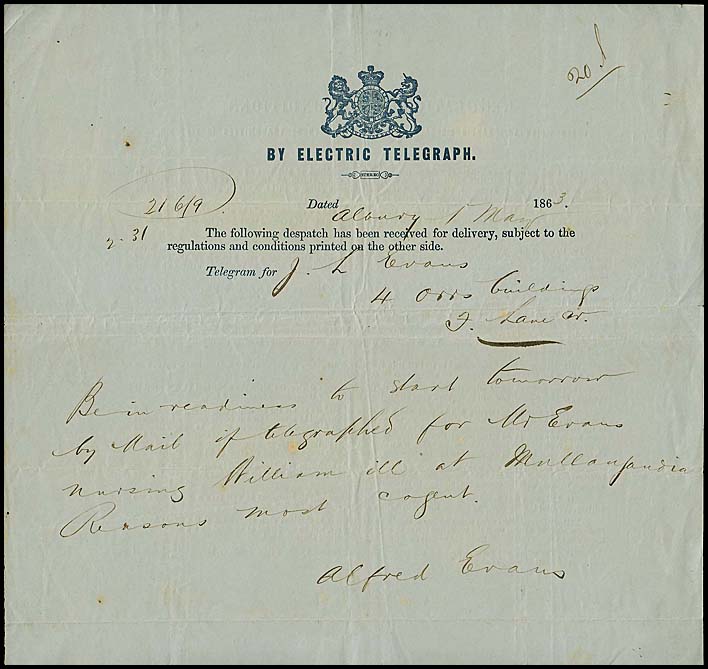 20d
BY ELECTRIC TELEGRAPH.
21 6/9
Dated Albury 1 May 1863.
2.31
The following despatch has been received for delivery, subject to the
regulations and conditions printed on the other side.
Telegram for J. L Evans
4 Orrs buildings
F. Lane W.
Be in readiness to start tomorrow
by Mail if telegraphed for Mr Evans
nursing William ill at Mullanjandra
Reasons most cogent.
Alfred Evans